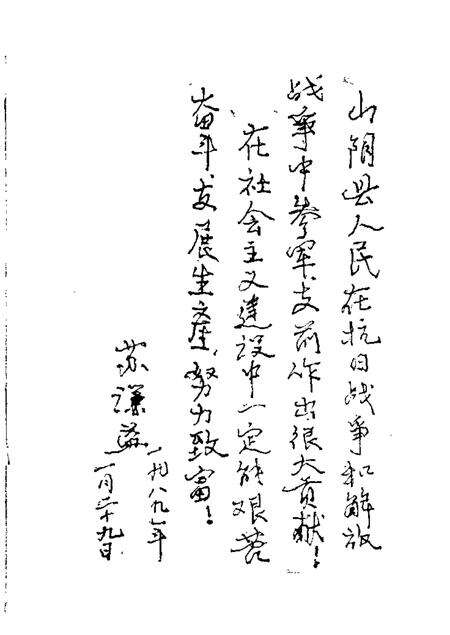 山阴县人民在抗日战争和解放
战争中参军、支前作出很大贡献!
在社会主义建设中一定能艰苦
奋斗、发展生产,努力致富!
苏谦益
一九八九年
一月二十九日